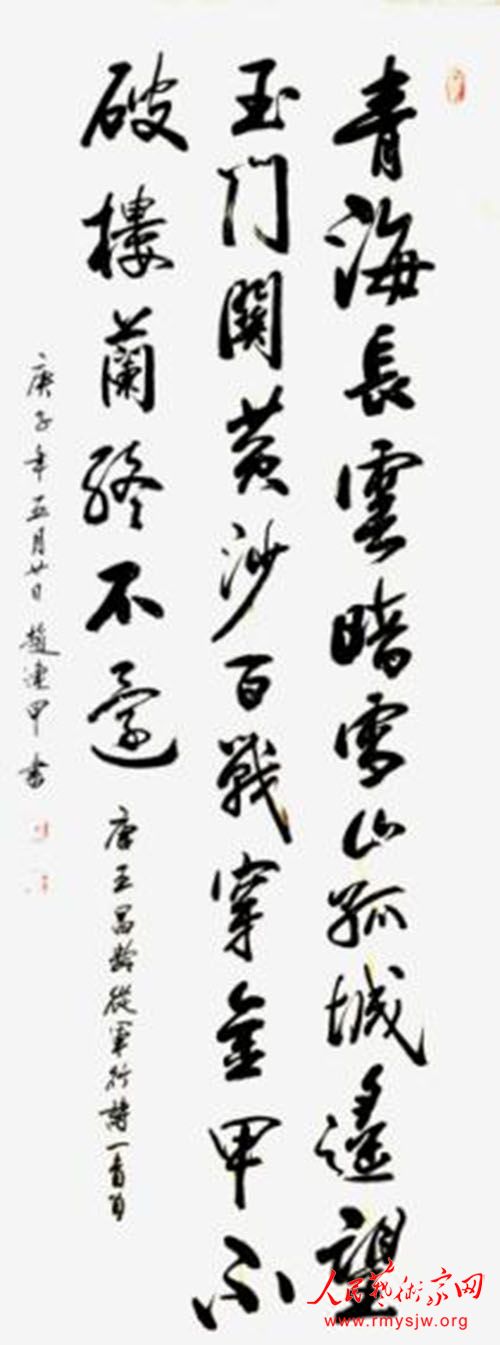 青海長雲暗雪山孤城遥望
玉门關黄沙百戰穿金甲不
破樓蘭終不還
唐王昌龄從军行詩一首
庚子年五月廿日趙連甲书
人民艺術家网
www.rmysjw.org